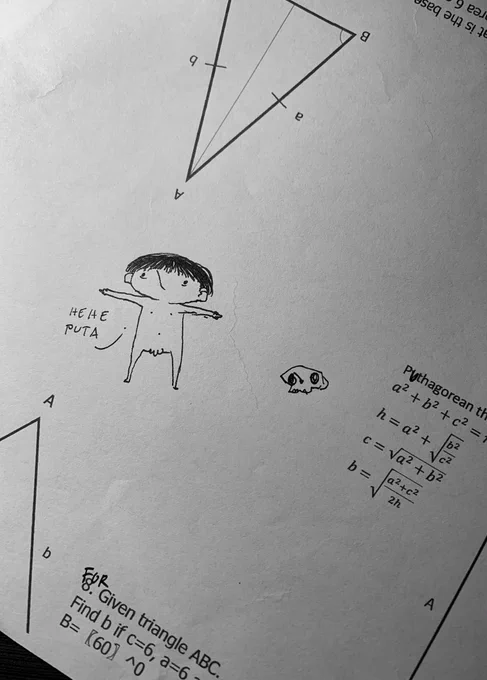 at is the base
B
b
a
A
HEHE
PUTA
A
b
Pythagorean th
a² + b² + c² =
h = a² + √b²/c²
c = √a² + b²
b = √a²+c²/2h
FOR
8. Given triangle ABC.
Find b if c=6, a=6
B= 〖60〗^0
A